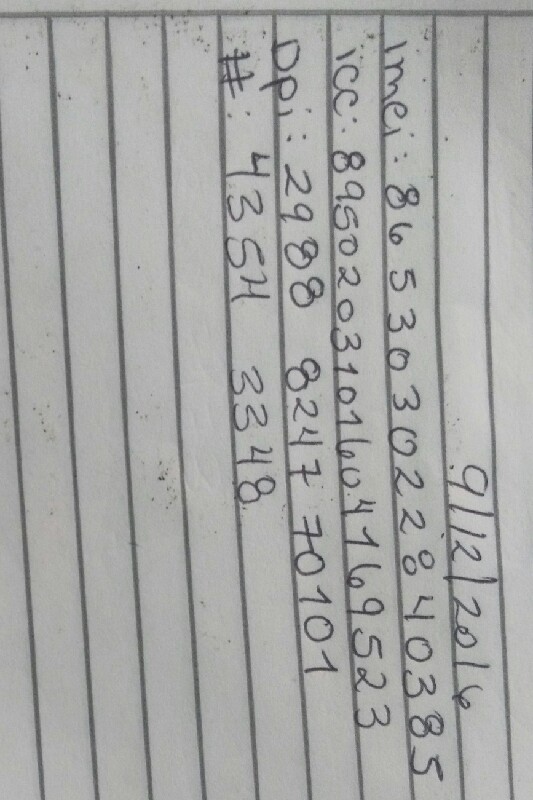 9/12/2016
Imei: 865303022840385
icc: 8950203101604169523
Dpi: 2988 8247 70101
#: 4354 3348